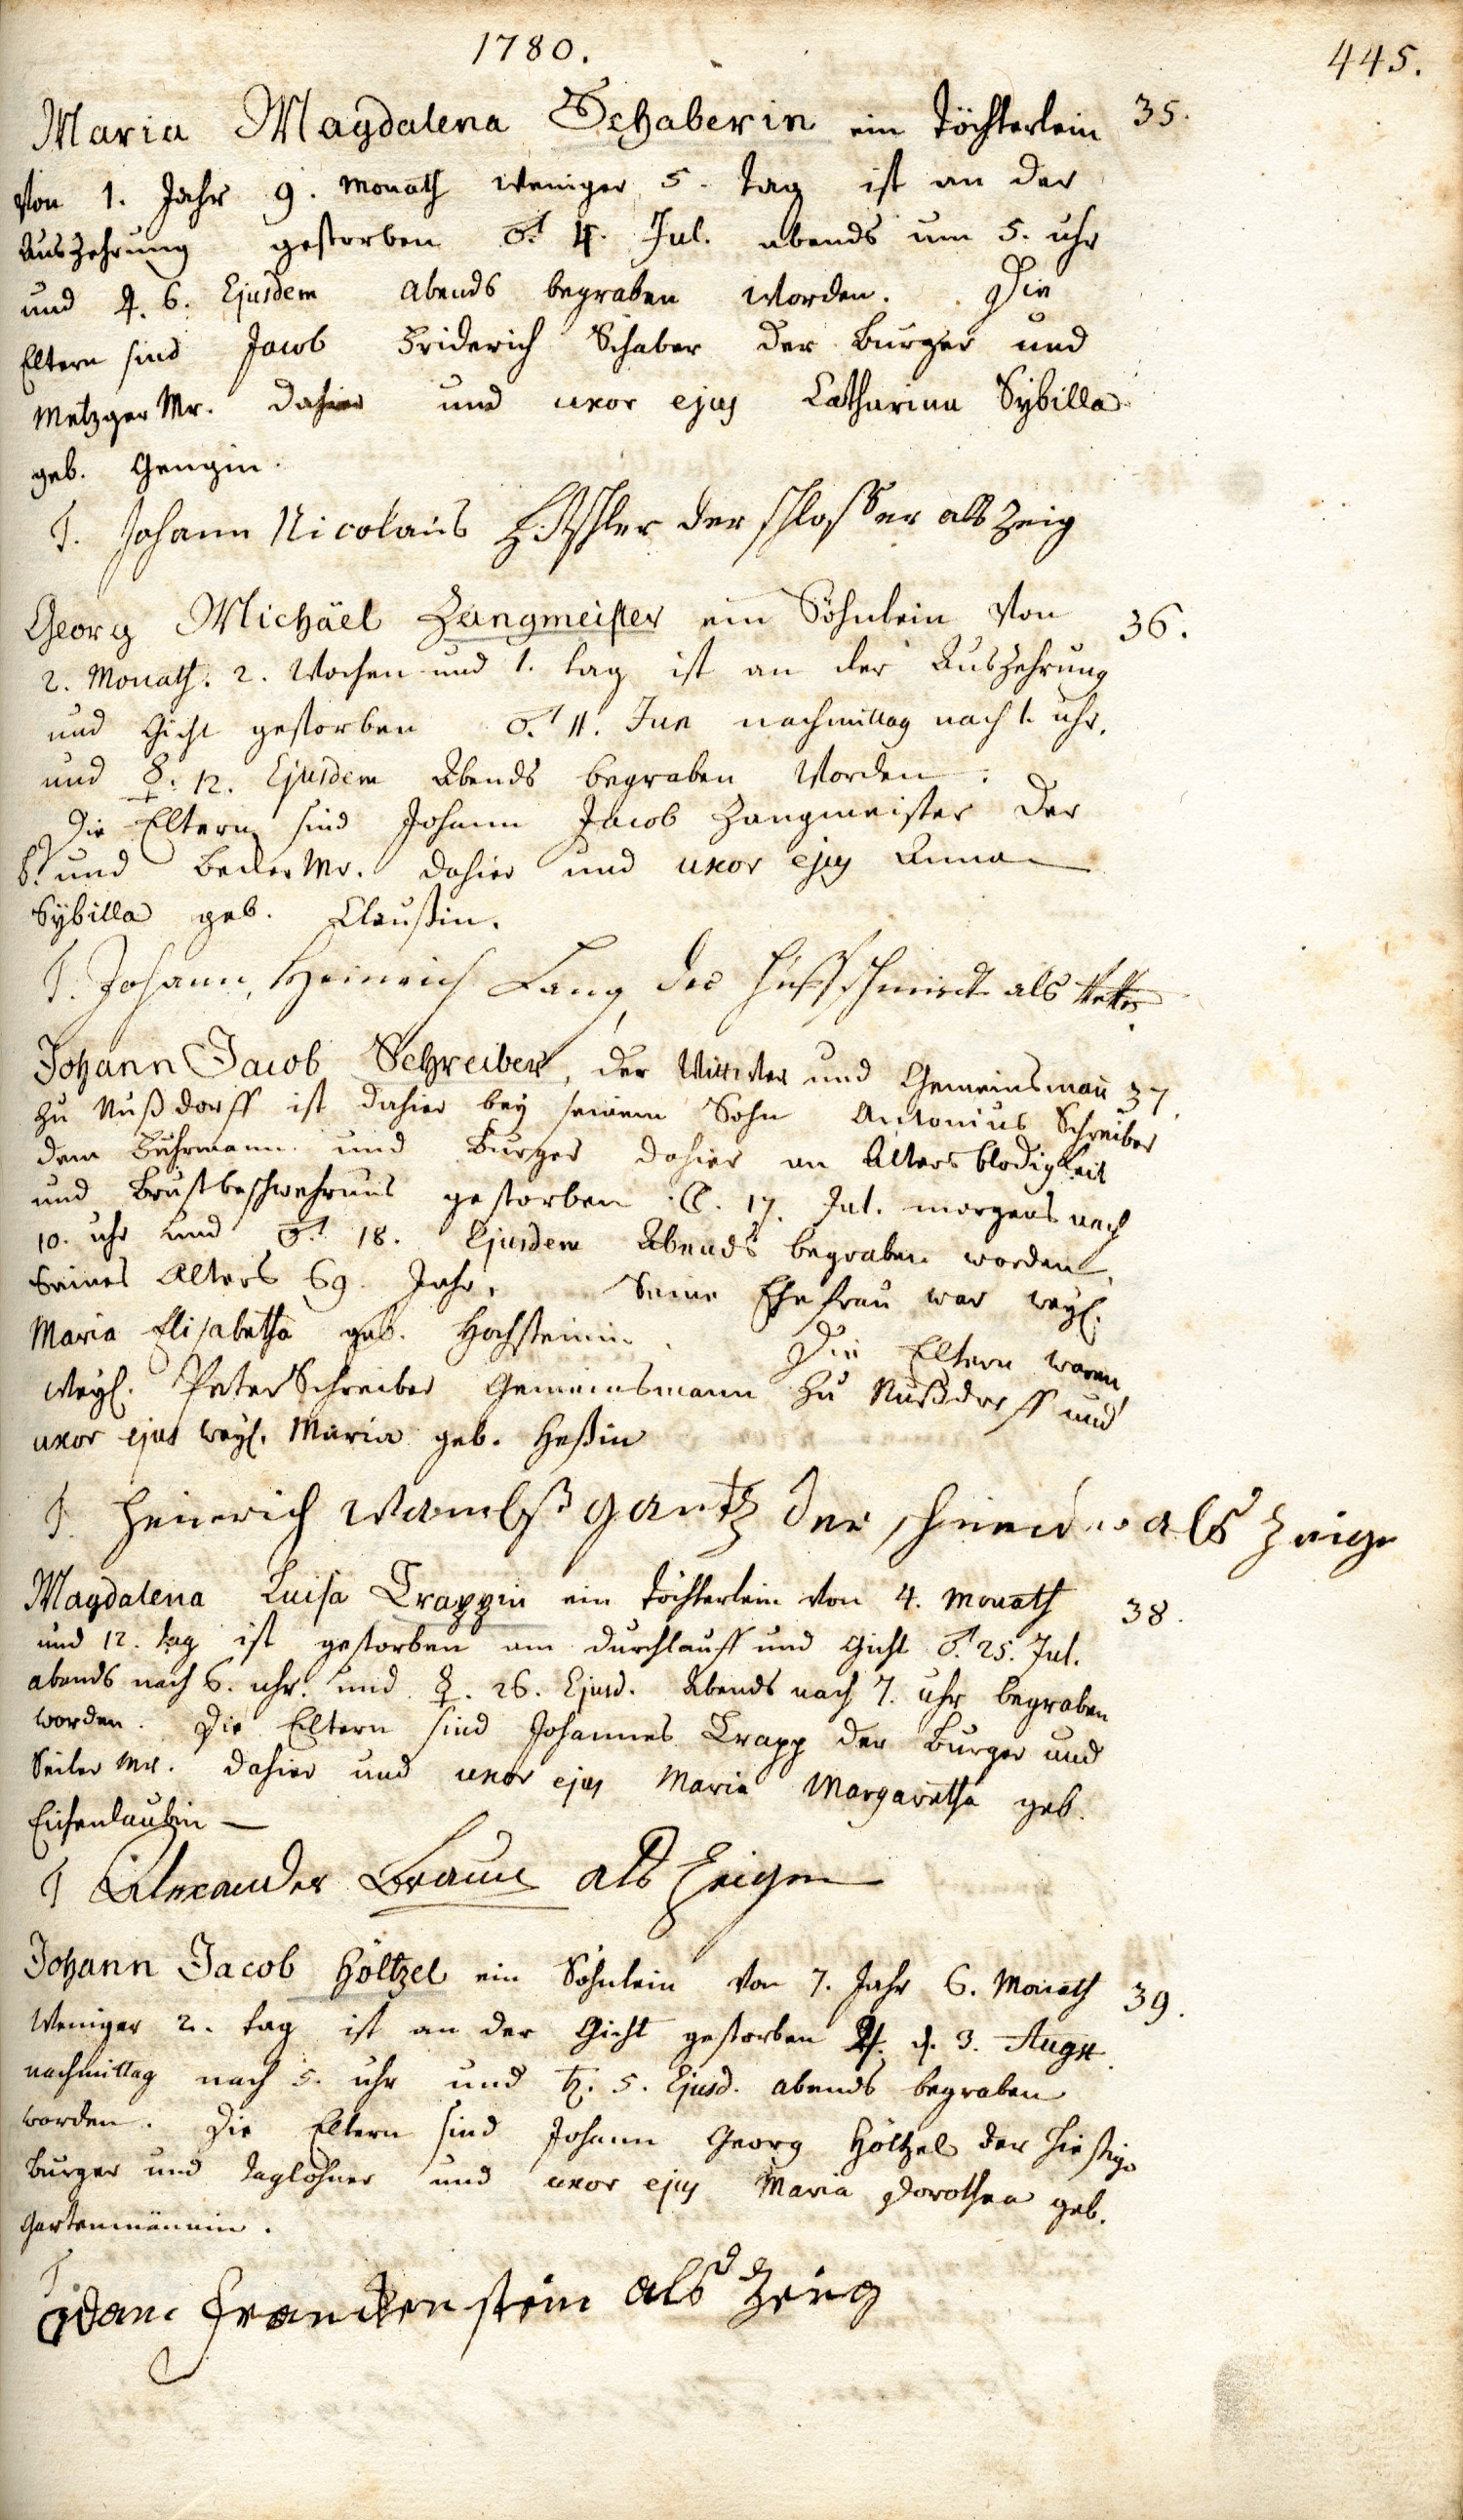 1780.
445.
Maria Magdalena Schaberin ein Töchterlein 35.
von 1. Jahr 9. Monath weniger 5. tag ist an der
Auszehrung gestorben ♂. 4. Jul. abends um 5. uhr
und ♃. 6. Ejusdem abends begraben worden. Die
Eltern sind Jacob Friderich Schaber der Burger und
Metzger Mr. dahier und uxor ejus Catharina Sybilla
geb. Gengin.
T. Johann Nicolaus der schlosser als Zeig
Georg Michäel Zangmeister ein Söhnlein von 36.
2. Monath. 2. Wochen und 1. tag ist an der Auszehrung
und Gicht gestorben ♂. 11. Jun nachmittag nach 1. uhr.
und ☿. 12. Ejusdem Abends begraben worden.
Die Eltern sind Johann Jacob Zangmeister der
b. und Mr. dahier und uxor ejus Anna
Sybilla geb. Claußin.
T. Johann Heinrich Lang der hufschmidt als
Johann Jacob Schreiber, der Wittwer und Gemeinsman 37.
zu Nußdorff ist dahier bey seinem Sohn Antonius Schreiber
dem Fuhrmann und Burger dahier an Altersblödigkeit
und Brustbeschwehrung gestorben ☾. 17. Jul. morgens nach
10. uhr und ♂. 18. Ejusdem Abends begraben worden,
seines Alters 69. Jahr. Seine Ehefrau war weyl.
Maria Elisabetha geb. Hochsteinin. Die Eltern waren
weyl. Peter Schreiber Gemeinsmann zu Nußdorff und
uxor ejus weyl. Maria geb. Heßin
T. Heinrich Wambsgantz der schneider als Zeige
Magdalena Luisa Trappin ein Töchterlein von 4. Monath 38.
und 12. tag ist gestorben am durchlauff und Gicht ♂. 25. Jul.
abends nach 6. uhr. und ☿. 26. Ejusd. Abends nach 7. uhr begraben
worden. Die Eltern sind Johannes Trapp der Burger und
Seiler Mr. dahier und uxor ejus Maria Margaretha geb.
Eichenlaubin
T Alexander Braun als Zeigen
Johann Jacob Höltzel ein Söhnlein von 7. Jahr 6. Monath 39.
Weniger 2. tag ist an der Gicht gestorben ♃. d. 3. Aug.
nachmittag nach 5. uhr und ♄. 5. Ejusd. abends begraben
worden. Die Eltern sind Johann Georg Höltzel der hiesige
Burger und Taglöhner und uxor ejus Maria Dorothea geb.
Gartenmännin.
T
Franckenstein als Zeüg